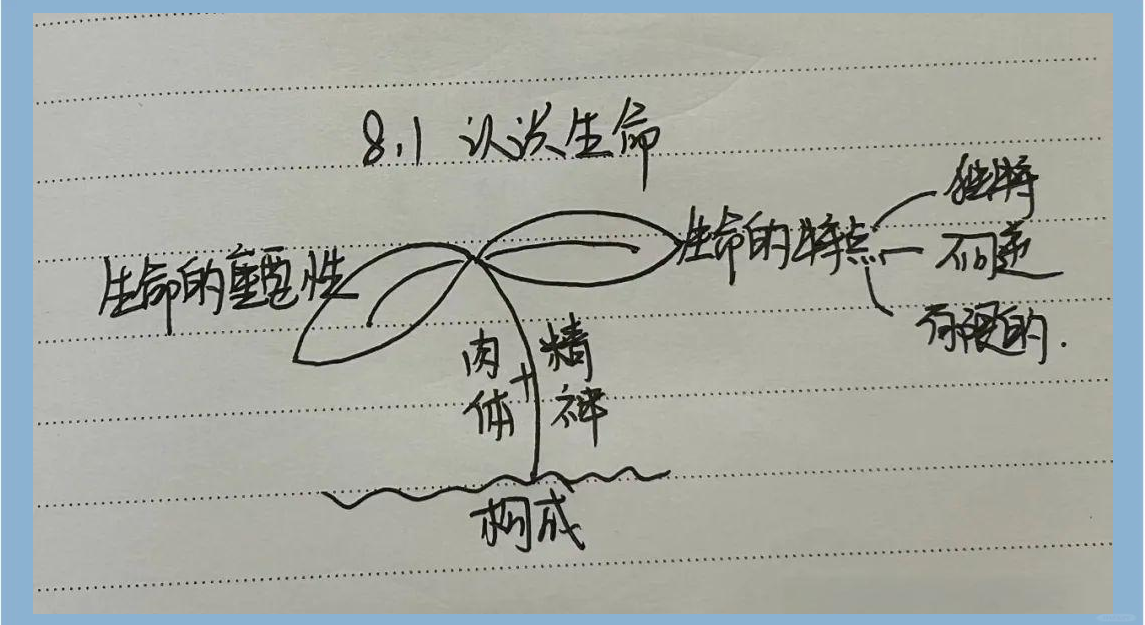 8.1 认识生命
生命的重要性
生命的特点
独特
不可逆
有限的.
肉体
+
精神
构成